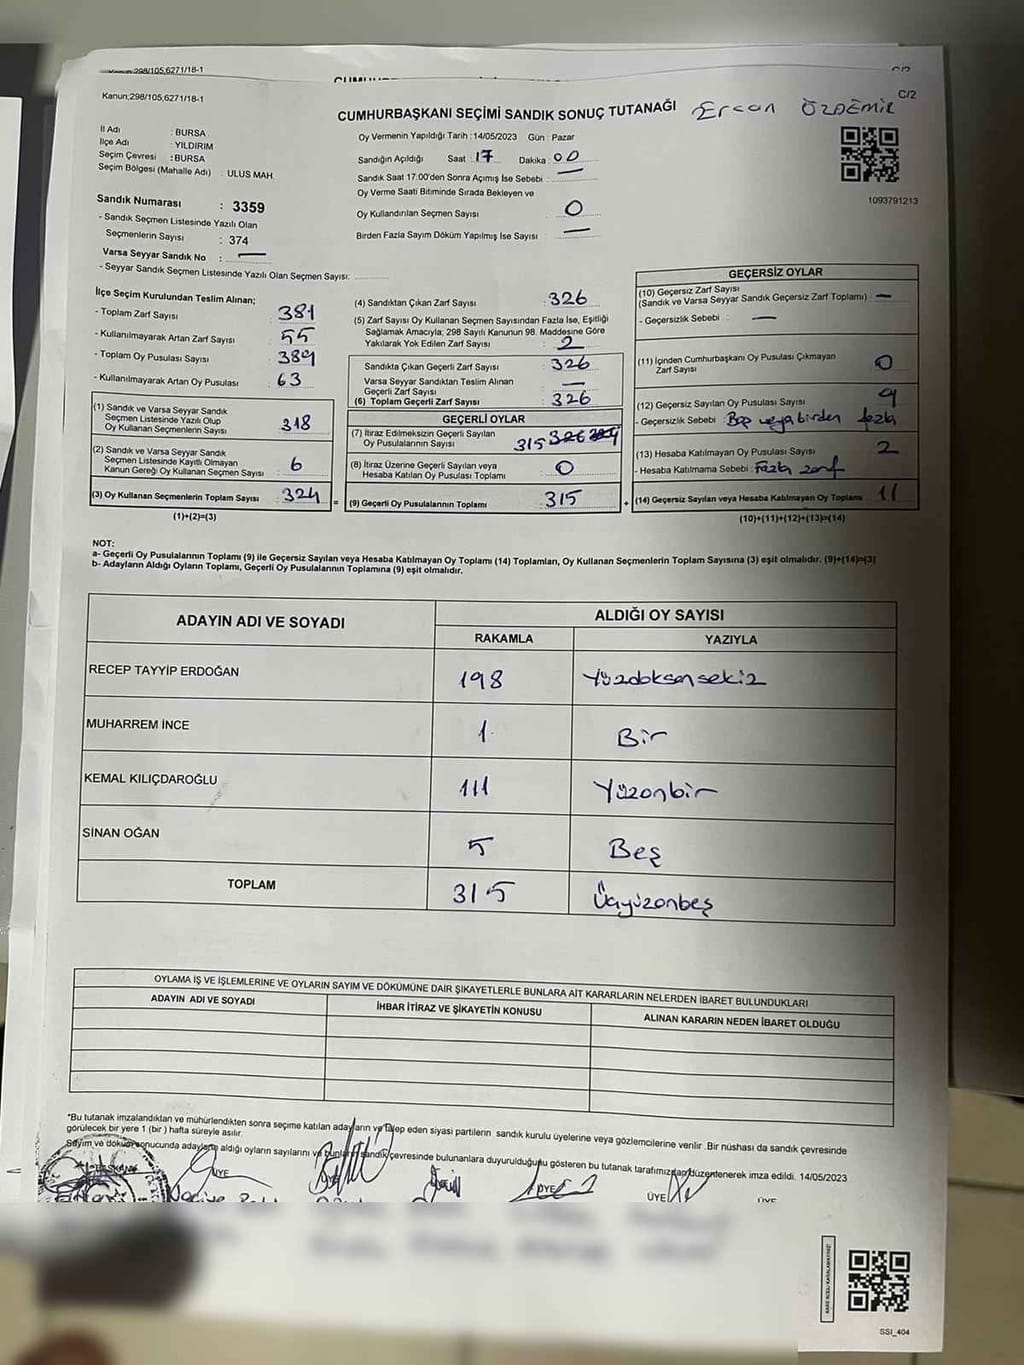 Kanun;298/105,6271/18-1
C/2
CUMHURBAŞKANI SEÇİMİ SANDIK SONUÇ TUTANAĞI
Ercan ÖZDEMİR
İl Adı : BURSA
İlçe Adı : YILDIRIM
Seçim Çevresi : BURSA
Seçim Bölgesi (Mahalle Adı) : ULUS MAH.
Oy Vermenin Yapıldığı Tarih :14/05/2023 Gün : Pazar
Sandığın Açıldığı Saat : 17 Dakika : 00
Sandık Saat 17:00'den Sonra Açımış İse Sebebi : —
Oy Verme Saati Bitiminde Sırada Bekleyen ve
Oy Kullandırılan Seçmen Sayısı : 0
Birden Fazla Sayım Döküm Yapılmış İse Sayısı : —
1093791213
Sandık Numarası : 3359
- Sandık Seçmen Listesinde Yazılı Olan
Seçmenlerin Sayısı : 374
Varsa Seyyar Sandık No : —
- Seyyar Sandık Seçmen Listesinde Yazılı Olan Seçmen Sayısı:
İlçe Seçim Kurulundan Teslim Alınan;
- Toplam Zarf Sayısı : 381
- Kullanılmayarak Artan Zarf Sayısı : 55
- Toplam Oy Pusulası Sayısı : 389
- Kullanılmayarak Artan Oy Pusulası : 63
(1) Sandık ve Varsa Seyyar Sandık
Seçmen Listesinde Yazılı Olup
Oy Kullanan Seçmenlerin Sayısı : 318
(2) Sandık ve Varsa Seyyar Sandık
Seçmen Listesinde Kayıtlı Olmayan
Kanun Gereği Oy Kullanan Seçmen Sayısı : 6
(3) Oy Kullanan Seçmenlerin Toplam Sayısı : 324
(1)+(2)=(3)
(4) Sandıktan Çıkan Zarf Sayısı : 326
(5) Zarf Sayısı Oy Kullanan Seçmen Sayısından Fazla İse, Eşitliği
Sağlamak Amacıyla; 298 Sayılı Kanunun 98. Maddesine Göre
Yakılarak Yok Edilen Zarf Sayısı : 2
Sandıkta Çıkan Geçerli Zarf Sayısı : 326
Varsa Seyyar Sandıktan Teslim Alınan
Geçerli Zarf Sayısı : —
(6) Toplam Geçerli Zarf Sayısı : 326
GEÇERLİ OYLAR
(7) İtiraz Edilmeksizin Geçerli Sayılan
Oy Pusulalarının Sayısı : 315 326
(8) İtiraz Üzerine Geçerli Sayılan veya
Hesaba Katılan Oy Pusulası Toplamı : 0
(9) Geçerli Oy Pusulalarının Toplamı : 315
GEÇERSİZ OYLAR
(10) Geçersiz Zarf Sayısı
(Sandık ve Varsa Seyyar Sandık Geçersiz Zarf Toplamı) : —
- Geçersizlik Sebebi : —
(11) İçinden Cumhurbaşkanı Oy Pusulası Çıkmayan
Zarf Sayısı : 0
(12) Geçersiz Sayılan Oy Pusulası Sayısı : 9
- Geçersizlik Sebebi : Boş veya birden fazla
(13) Hesaba Katılmayan Oy Pusulası Sayısı : 2
- Hesaba Katılmama Sebebi : Fazla zarf
(14) Geçersiz Sayılan veya Hesaba Katılmayan Oy Toplamı : 11
(10)+(11)+(12)+(13)=(14)
NOT:
a- Geçerli Oy Pusulalarının Toplamı (9) ile Geçersiz Sayılan veya Hesaba Katılmayan Oy Toplamı (14) Toplamları, Oy Kullanan Seçmenlerin Toplam Sayısına (3) eşit olmalıdır. (9)+(14)=(3)
b- Adayların Aldığı Oyların Toplamı, Geçerli Oy Pusulalarının Toplamına (9) eşit olmalıdır.
ADAYIN ADI VE SOYADI ALDIĞI OY SAYISI
RAKAMLA YAZIYLA
RECEP TAYYİP ERDOĞAN 198 Yüzdoksansekiz
MUHARREM İNCE 1 Bir
KEMAL KILIÇDAROĞLU 111 Yüzonbir
SİNAN OĞAN 5 Beş
TOPLAM 315 Üçyüzonbeş
OYLAMA İŞ VE İŞLEMLERİNE VE OYLARIN SAYIM VE DÖKÜMÜNE DAİR ŞİKAYETLERLE BUNLARA AİT KARARLARIN NELERDEN İBARET BULUNDUKLARI
ADAYIN ADI VE SOYADI İHBAR İTİRAZ VE ŞİKAYETİN KONUSU ALINAN KARARIN NEDEN İBARET OLDUĞU
*Bu tutanak imzalandıktan ve mühürlendikten sonra seçime katılan adayların ve talep eden siyasi partilerin sandık kurulu üyelerine veya gözlemcilerine verilir .Bir nüshası da sandık çevresinde
görülecek bir yere 1 (bir ) hafta süreyle asılır.
Sayım ve döküm sonucunda adayların aldığı oyların sayılarını ve bunların sandık çevresinde bulunanlara duyurulduğunu gösteren bu tutanak tarafımızdan düzenlenerek imza edildi. 14/05/2023
BAŞKAN ÜYE ÜYE ÜYE ÜYE
KARE KODU KARALAMAYINIZ!
SSI_404